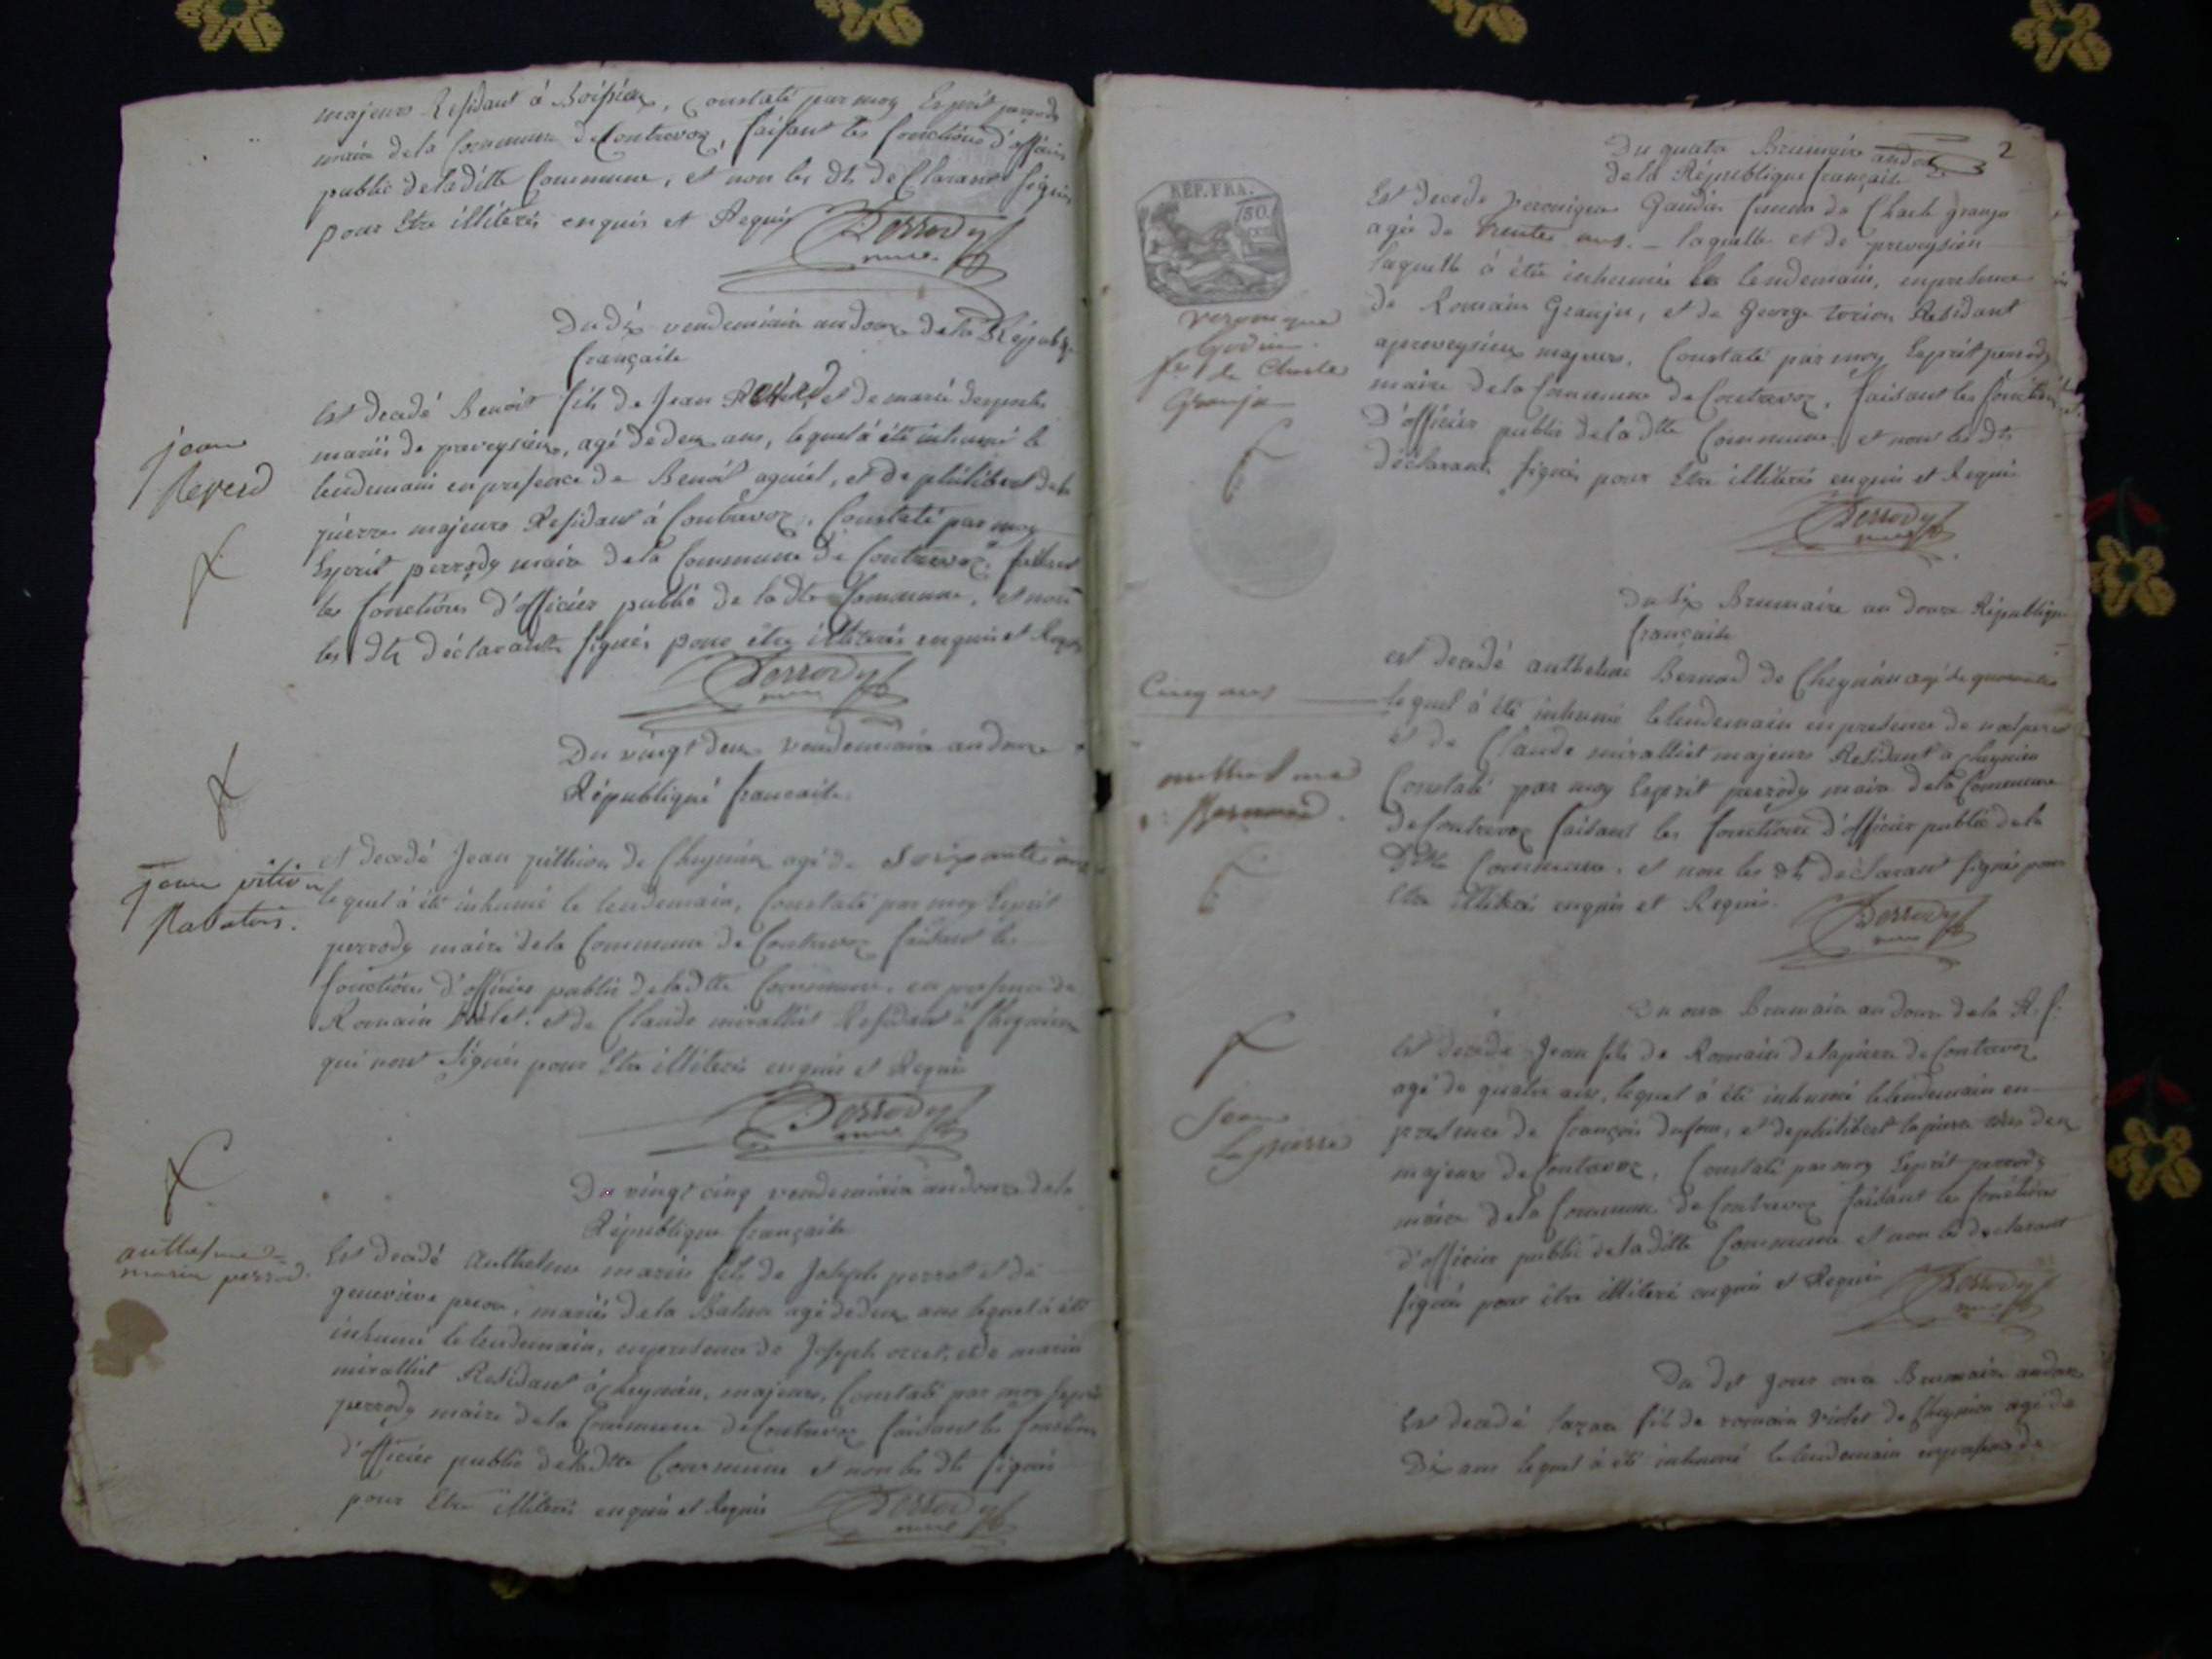 majeurs Residant à Boissieu, Constaté par moy Esprit perrody
maire dela Commune de Contrevoz, faisant les fonctions d'officier
public deladitte Commune, et non les dts declarants signés
pour Etre illiterés enquis et Requis
Perrody
maire
Du dix vendemiaire an douze dela Républiq
française
Est decedé Benoit fils de Jean Reverd et de marie
mariés de preveysieu, agé de deux ans, lequel à été inhumé le
lendemain en presence de Benoit aguiet, et de philibert dela
pierre majeurs Residant à Contrevoz, Constaté par moy
Esprit perrody maire dela Commune de Contrevoz faisant
les fonctions d'officier public de la dte Commune, et non
les dts déclarants signés pour être illiterés enquis et Requis
jean
Reverd
Perrody
maire
Du vingt deux vendemiaire an douze
République française
et decedé Jean pithion de Cheynieu agé de Soixante
lequel à été inhumé le lendemain, Constaté par moy Esprit
perrody maire dela Commune de Contrevoz faisant les
fonctions d'officier public deladtte Commune, en presence de
Romain violet, et de Claude miralliet Residant à Cheynieu
qui nont signés pour Etre illiterés enquis et Requis
jean pition
Rabatons.
Perrody
maire
Du vingt cinq vendemiaire an douze dela
République française
Est decedé Anthelme marin fils de Joseph perrot et de
genevieve, mariés de la Balme agé de deux ans lequel à été
inhumé le lendemain, en presence de Joseph, et de marin
miralliet Residant à Cheynieu, majeurs, Constaté par moy Esprit
perrody maire dela Commune de Contrevoz faisant les fonctions
d'officier public deladtte Commune et non les dts signés
pour Etre illiterés enquis et Requis
anthelme
marin perrod.
Perrody
maire
2
Du quatre Brumaire an douze
dela République française
REP. FRA.
50
CEN
Est decede veronique Gaudin femme de Charle granju
agée de trente ans. – laquelle et de preveysieu
laquelle à été inhumée le lendemain, en presence
de Romain Granju, et de George Residant
a preveysieu majeurs, Constaté par moy Esprit perrody
maire dela Commune de Contrevoz, faisant les fonctions
d'officier public dela dtte Commune et non les dts
déclarants signés pour Etre illiterés enquis et Requis
veronique
Godin
fe de Charles
Granju
Perrody
maire
Du six Brumaire an douze République
française
est decedé anthelme Bernard de Cheynieu agé de quarante
Cinq ans
lequel à été inhumé le lendemain en presence de noel
et de Claude miralliet majeurs Residant a cheynieu
Constaté par moy Esprit perrody maire dela Commune
de Contrevoz faisant les fonctions d'officier public dela
ditte Commune, et non les dts declarant signés pour
Etre illiterés enquis et Requis.
anthelme
Bernard
Perrody
maire
Du onze Brumaire an douze dela R. f.
Est decede Jean fils de Romain delapierre de Contrevoz
agé de quatre ans, lequel à été inhumé le lendemain en
presence de françois, et de philibert lapierre tous deux
majeurs de Contrevoz, Constaté par moy Esprit perrody
maire dela Commune de Contrevoz faisant les fonctions
d'officier public deladitte Commune et non les declarant
signés pour être illiteré enquis et Requis
Jean
Lapierre
Perrody
maire
Du dit jour onze Brumaire an douze
Est decedé lazare fils de romain violet de Cheynieu agé de
Dix ans lequel à été inhumé le lendemain en presence de